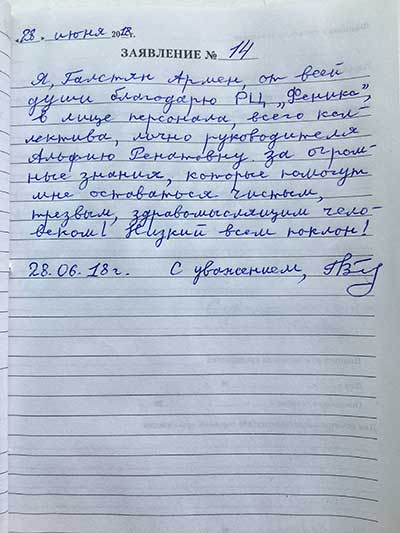 28. июня 2018г.
ЗАЯВЛЕНИЕ № 14
Я, Галстян Армен, от всей
души благодарю РЦ „Феникс”,
в лице персонала, всего кол-
лектива, лично руководителя
Альфию Ренатовну за огром-
ные знания, которые помогут
мне оставаться чистым,
трезвым, здравомыслящим чело-
веком! Низкий всем поклон!
28.06.18г. С уважением,